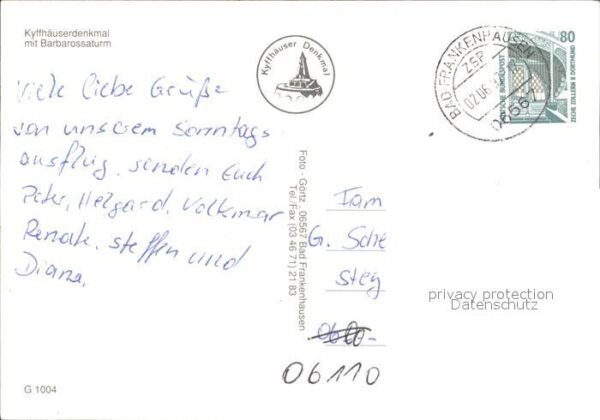 Kyffhäuserdenkmal
mit Barbarossaturm
Kyffhäuser Denkmal
BAD FRANKENHAUSEN
ZSP
02.06
06567
80
DEUTSCHE BUNDESPOST
ZECHE ZOLLERN II DORTMUND
Viele liebe Grüße
von unserem Sonntags
ausflug, senden Euch
Peter, Helgard, Volkmar
Renate, Steffen und
Diana,
Foto - Görtz · 06567 Bad Frankenhausen
Tel./Fax (03 46 71) 21 83
Fam
G. Sche
Steg
06110
privacy protection
Datenschutz
G 1004